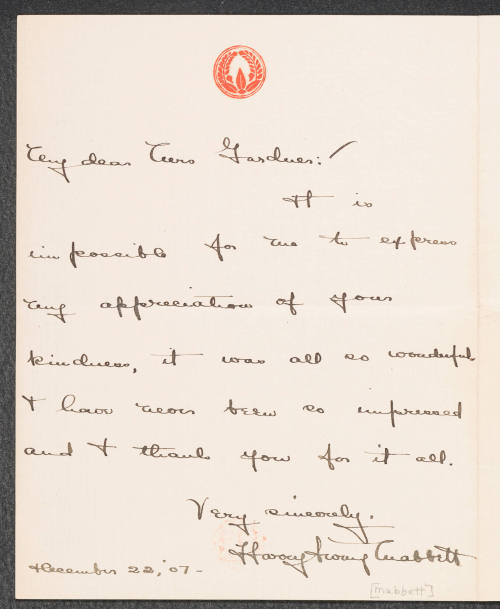 My dear Mrs Gardner:
It is
impossible for me to express
my appreciation of your
kindness, it was all so wonderful
I have never been so impressed
and I thank you for it all.
Very sincerely.
Mabbett
December 22, '07-
[Mabbett]